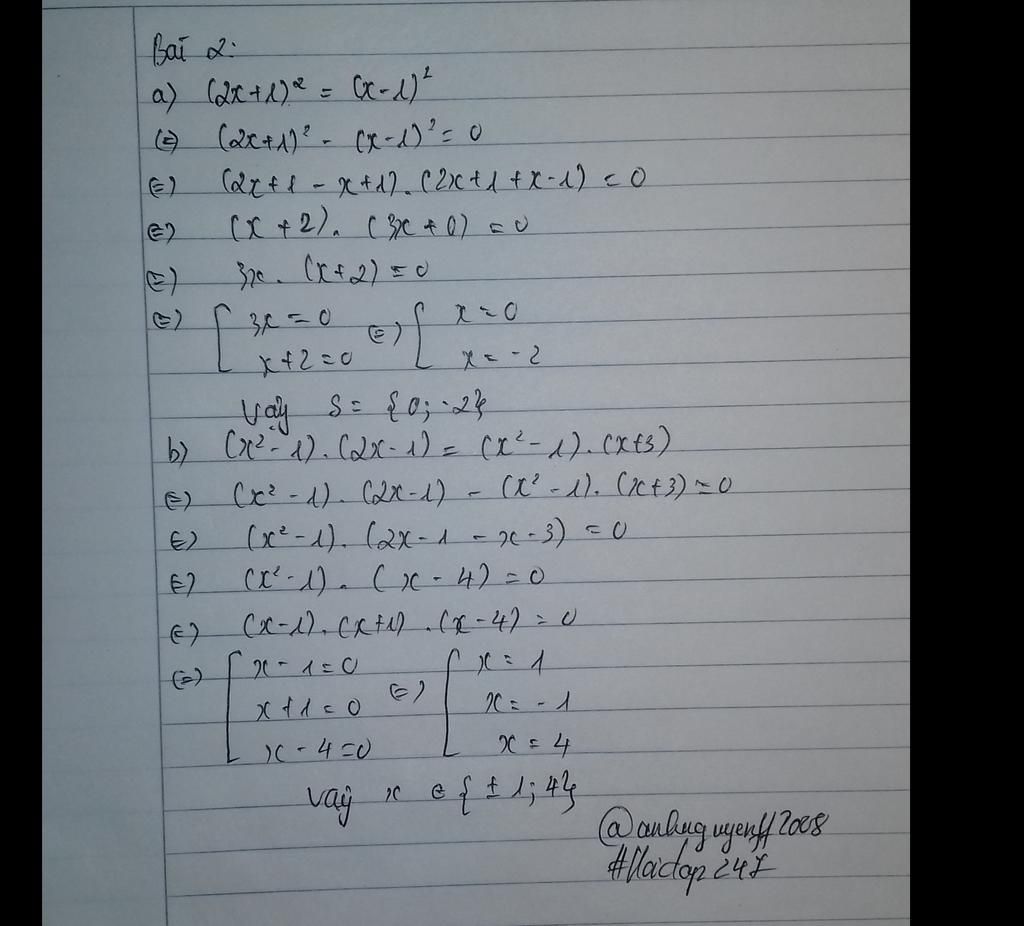 Bài 2:
a) (2x+1)² = (x-1)²
⇔ (2x+1)² - (x-1)² = 0
⇔ (2x+1 - x+1).(2x+1+x-1) = 0
⇔ (x+2).(3x+0) = 0
⇔ 3x.(x+2) = 0
⇔ [ 3x = 0 ⇔ [ x = 0
x+2 = 0 x = -2
Vậy S = {0; -2}
b) (x²-1).(2x-1) = (x²-1).(x+3)
⇔ (x²-1).(2x-1) - (x²-1).(x+3) = 0
⇔ (x²-1).(2x-1-x-3) = 0
⇔ (x²-1).(x-4) = 0
⇔ (x-1).(x+1).(x-4) = 0
⇔ [ x-1 = 0 ⇔ [ x = 1
x+1 = 0 x = -1
x-4 = 0 x = 4
Vậy x ∈ {±1; 4}
@anhnguyenff2008
#Hoidap247